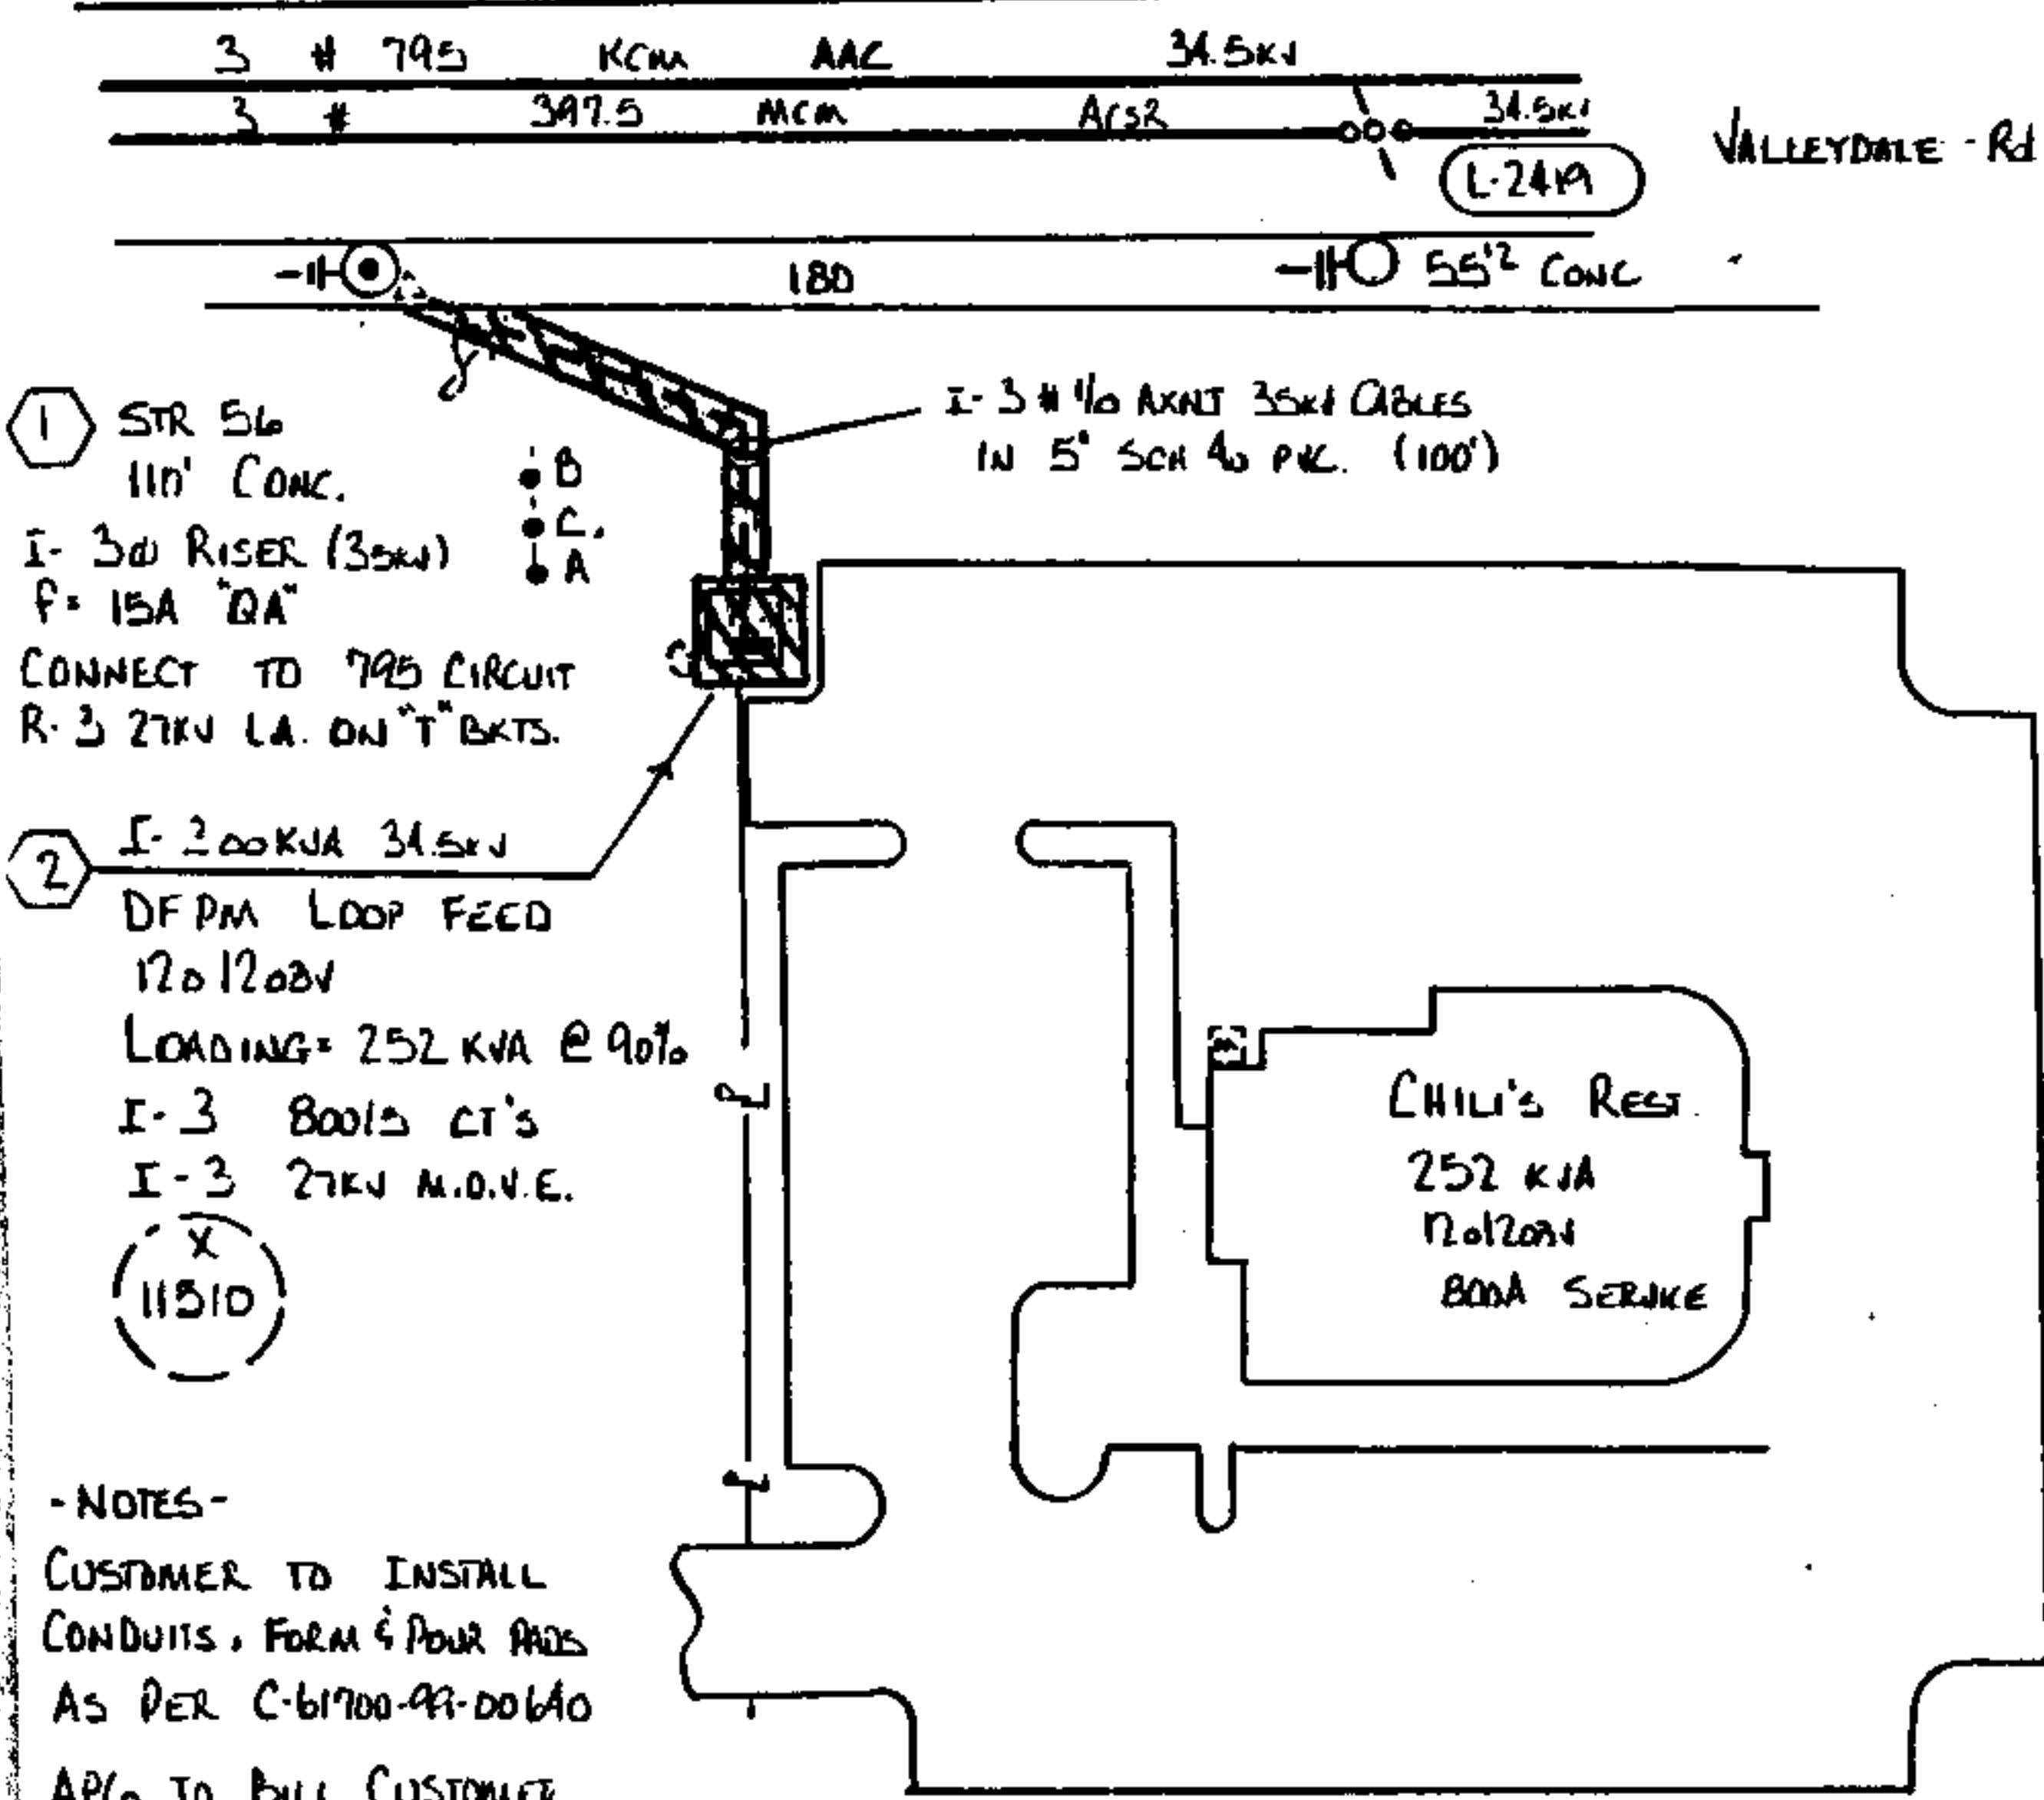 3 # 795 KCM AAC 34.5KV
3 # 397.5 MCM ACSR 34.5KV
VALLEYDALE - Rd
L-2419
180
55'2 CONC
1
STR 56
110' CONC.
I- 3Ø RISER (35KV)
F= 15A "QA"
CONNECT TO 795 CIRCUIT
R-3 27KV L.A. ON "T" BKTS.
B
C.
A
I- 3 # 1/0 AXNJ 35KV CABLES
IN 5" SCH 40 PVC. (100')
2
I- 300KVA 34.5KV
DFPM LOOP FEED
120/208V
LOADING= 252 KVA @ 90%
I-3 800/5 CT'S
I-3 27KV M.O.V.E.
X
11510
CHILI'S REST.
252 KVA
120/208V
800A SERVICE
-NOTES-
CUSTOMER TO INSTALL
CONDUITS, FORM & POUR PADS
AS PER C-61700-99-00640
APCo TO BILL CUSTOMER